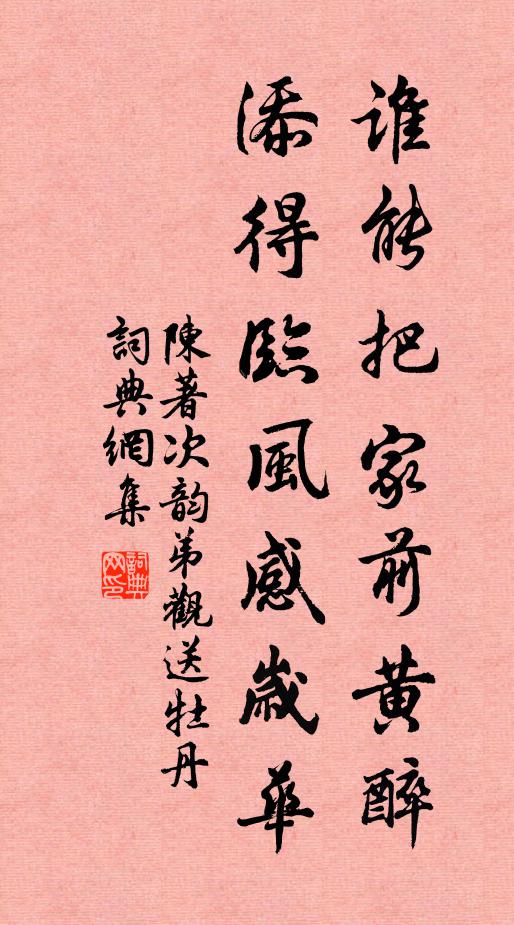 誰能把家前黃醉
添得臨風感歲華
陳著次韵弟觀送牡丹
詞典網集
詞典網印